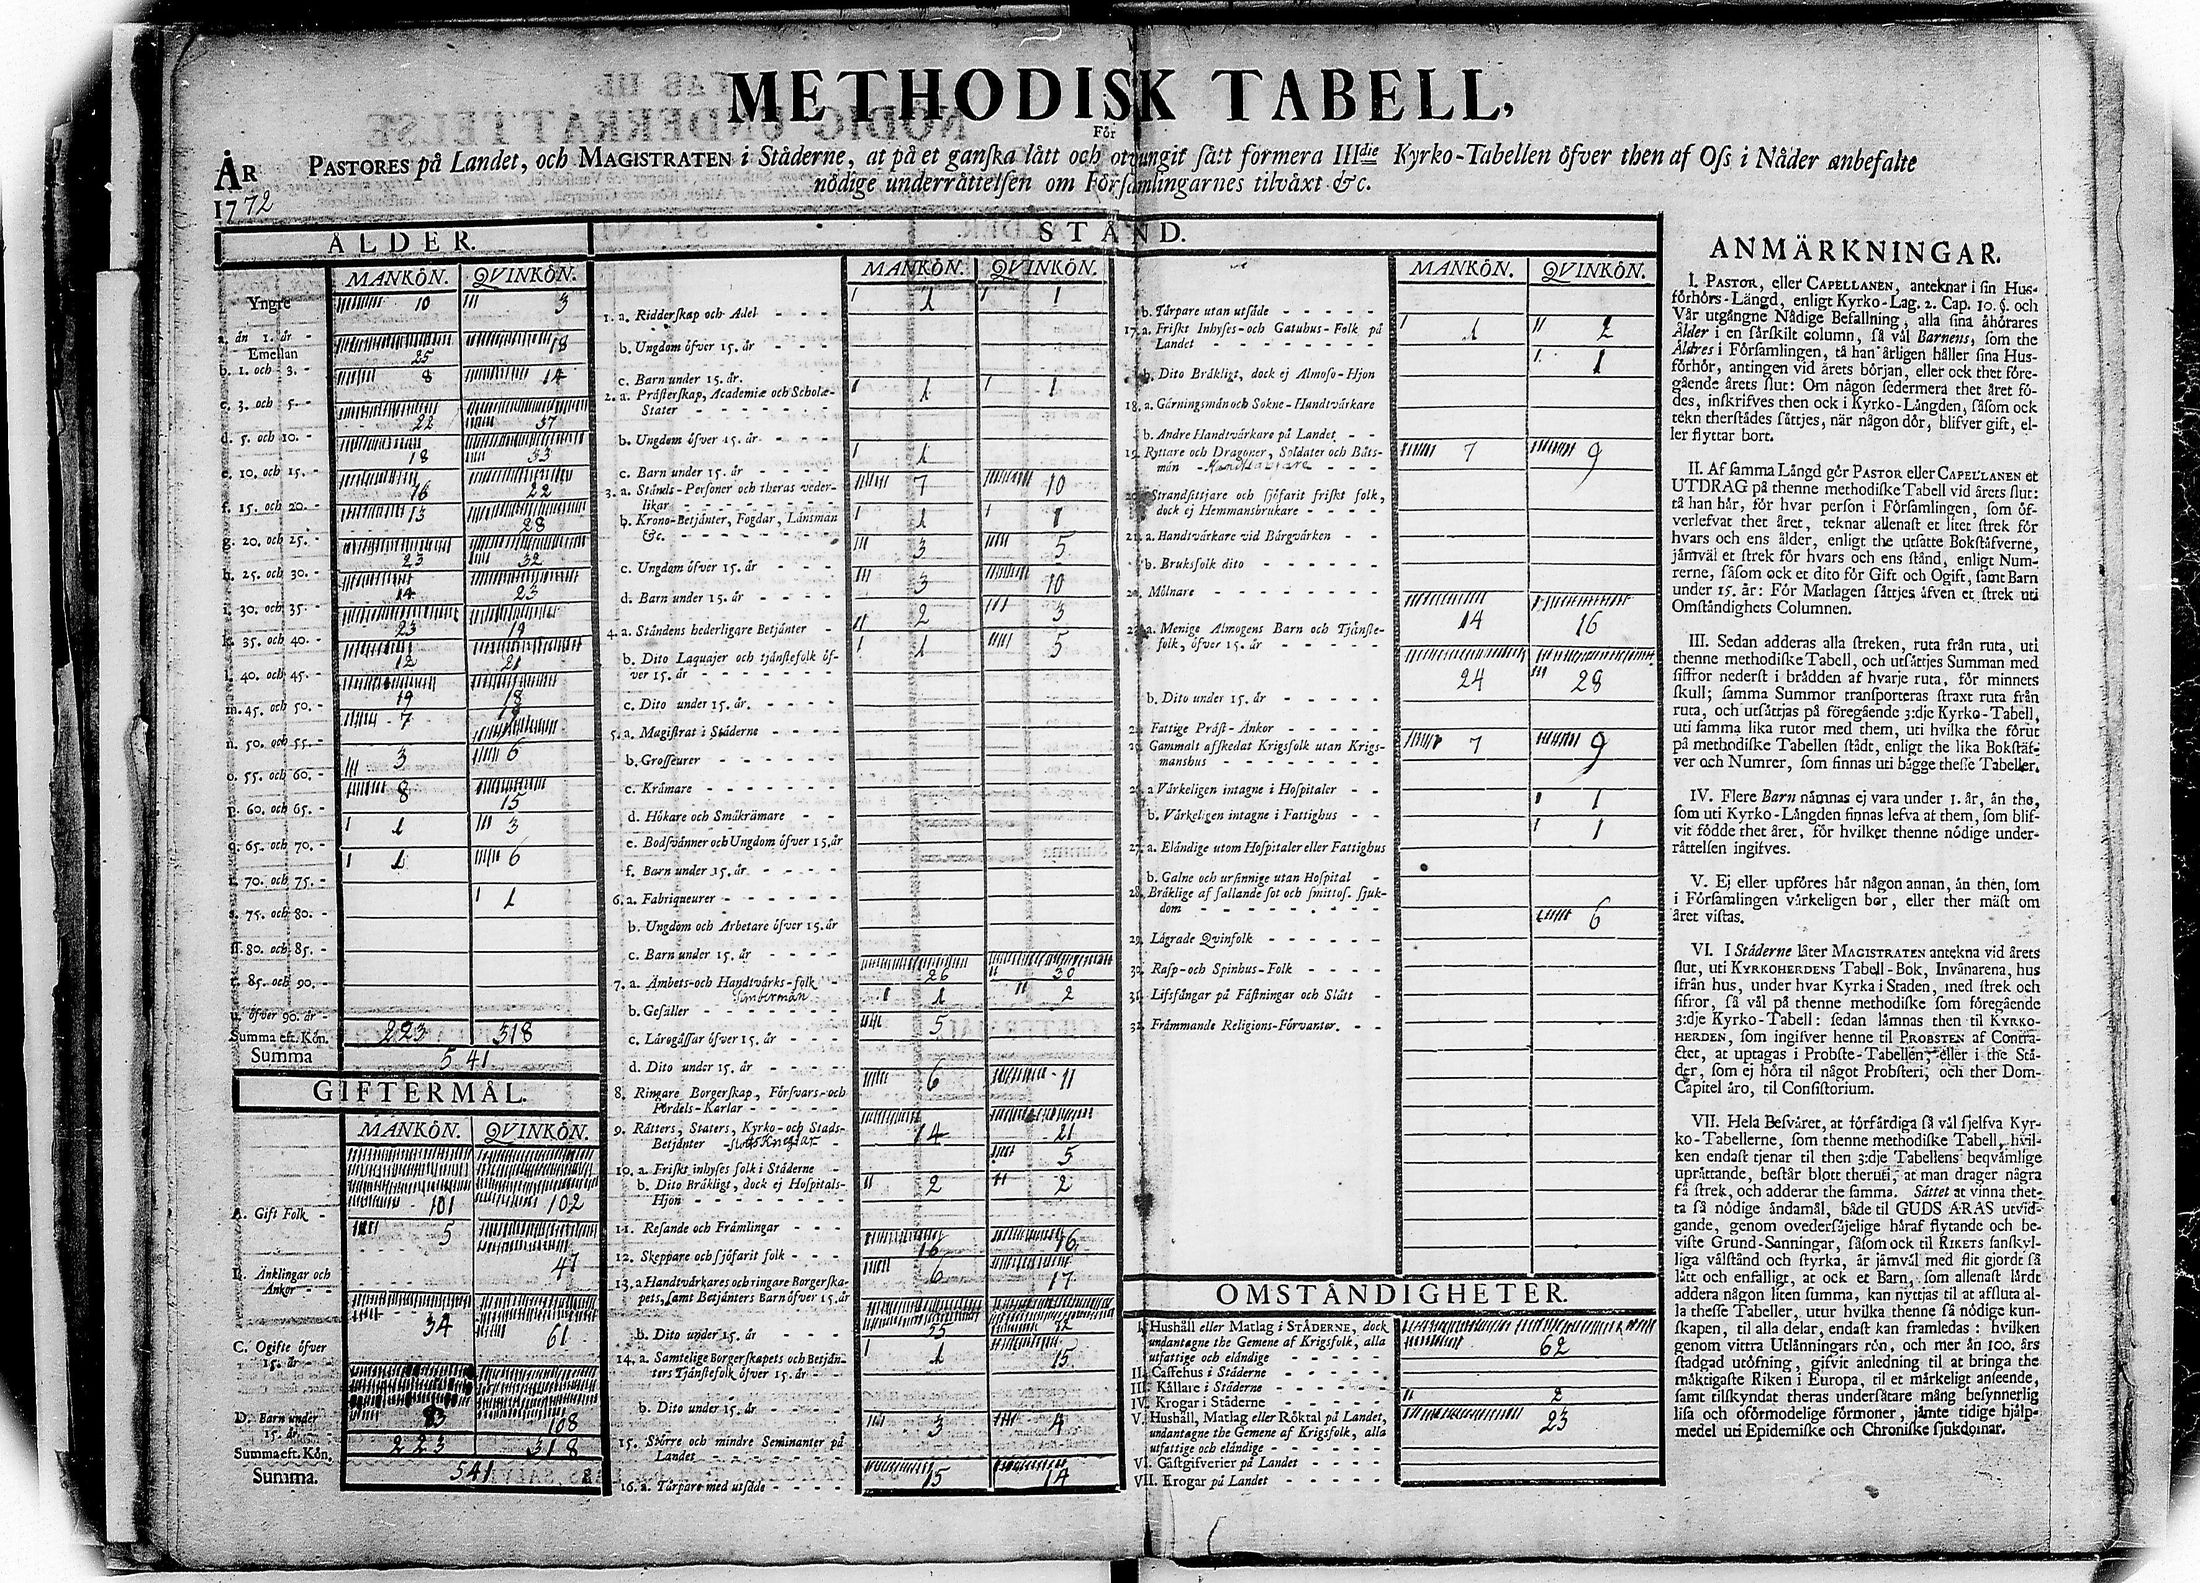 METHODISK TABELL,
För
ÅR
1772
PASTORES på Landet, och MAGISTRATEN i Städerne, at på et ganska lått och otvungit sått formera IIIdie Kyrko-Tabellen öfver then af Oss i Nåder anbefalte
nödige underråttelsen om Församlingarnes tilvåxt &c.
ÅLDER.
MANKÖN. QVINKÖN.
Yngre
a. än 1. år - 10 3
Emellan
b. 1. och 3. - 25 18
c. 3. och 5. - 8 14
d. 5. och 10. - 22 37
e. 10. och 15. - 18 33
f. 15. och 20. - 16 22
g. 20. och 25. - 13 28
h. 25. och 30. - 23 32
i. 30. och 35. - 14 23
k. 35. och 40. - 23 19
l. 40. och 45. - 12 21
m. 45. och 50. - 19 18
n. 50. och 55. - 7 18
o. 55. och 60. - 3 6
p. 60. och 65. - 8 15
q. 65. och 70. - 1 3
r. 70. och 75. - 1 6
s. 75. och 80. - 1
ss. 80. och 85. -
t. 85. och 90. -
u. öfver 90. år -
Summa eft. Kön. 223 318
Summa 541
GIFTERMÅL.
MANKÖN. QVINKÖN.
A. Gift Folk - 101 102
B. Änklingar och
Änkor - - 5 47
C. Ogifte öfver
15. år - - 34 61
D. Barn under
15. år - - 83 108
Summa eft. Kön. 223 318
Summa. 541
STÅND.
MANKÖN. QVINKÖN.
1. a. Ridderskap och Adel - - - 1 1
b. Ungdom öfver 15. år - - - -
c. Barn under 15. år.
2. a. Pråsterskap, Academiæ och Scholæ-
Stater - - - - - - - 1 1
b. Ungdom öfver 15. år - - - -
c. Barn under 15. år - - - - 1
3. a. Stånds-Personer och theras veder-
likar - - - - - - 7 10
b. Krono-Betjånter, Fogdar, Lånsmån
&c. - - - - - - - - 1 1
c. Ungdom öfver 15. år - - - 3 5
d. Barn under 15. år - - - - 3 10
4. a. Ståndens hederligare Betjånter - 2 3
b. Dito Laquajer och tjånstefolk öf-
ver 15. år - - - - - - - 1 5
c. Dito under 15. år. - - - -
5. a. Magistrat i Ståderne - - - -
b. Grosseurer - - - - - -
c. Kråmare - - - - - - -
d. Hökare och Småkråmare - -
e. Bodsvånner och Ungdom öfver 15. år
f. Barn under 15. år - - - -
6. a. Fabriqueurer - - - - - -
b. Ungdom och Arbetare öfver 15. år
c. Barn under 15. år - - - -
7. a. Åmbets-och Handtvårks-folk - 26 30
Timberman
b. Gesåller - - - - - - 1 2
c. Lårogåssar öfver 15. år - - - 5
d. Dito under 15. år - - - -
8. Ringare Borgerskap, Försvars-och
Fördels-Karlar - - - - - 6 11
9. Råtters, Staters, Kyrko-och Stads-
Betjånter - 14 21
10. a. Friskt inhyses folk i Ståderne - 5
b. Dito Bråkligt, dock ej Hospitals-
Hjon - - - - - - - - 2 2
11. Resande och Fråmlingar - - -
12. Skeppare och sjöfarit folk - - - 16 16
13. a Handtvårkares och ringare Borgerska-
pets, samt Betjånters Barn öfver 15. år 6 17
b. Dito under 15. år - - - - 35 52
14. a. Samtelige Borgerskapets och Betjån-
ters Tjånstefolk öfver 15. år - - 1 15
b. Dito under 15. år - - - -
15. Större och mindre Seminanter på
Landet - - - - - - - 3 4
16. a. Tårpare med utsåde - - - - 15 14
MANKÖN. QVINKÖN.
b. Tårpare utan utsåde - - - - -
17. a. Friskt Inhyses-och Gatuhus-Folk på
Landet - - - - - - - - 1 2
b. Dito Bråkligt, dock ej Almoso-Hjon 1
18. a. Gårningsmån och Sokne-Handtvårkare
b. Andre Handtvårkare på Landet - -
19. Ryttare och Dragoner, Soldater och Båts-
mån - - - - 7 9
20. Strandsittjare och sjöfarit friskt folk,
dock ej Hemmansbrukare - - - -
21. a. Handtvårkare vid Bårgvårken - -
b. Bruksfolk dito - - - - - -
22. Mölnare - - - - - - -
23. a. Menige Almogens Barn och Tjånste-
folk, öfver 15. år - - - - - 14 16
b. Dito under 15. år - - - - - 24 28
24. Fattige Pråst-Ånkor - - - - -
25. Gammalt afskedat Krigsfolk utan Krigs-
manshus - - - - - - - 7 9
26. a Vårkeligen intagne i Hospitaler - -
b. Vårkeligen intagne i Fattighus - - 1
27. a. Elåndige utom Hospitaler eller Fattighus 1
b. Galne och ursinnige utan Hospital -
28. Bråklige af fallande sot och smittos. sjuk-
dom - - - - - - - -
29. Lågrade Qvinfolk - - - - - - 6
30. Rasp-och Spinhus-Folk - - - -
31. Lifsfångar på Fåstningar och Slått -
32. Fråmmande Religions-Förvanter. - - -
OMSTÅNDIGHETER.
I. Hushåll eller Matlag i STÅDERNE, dock
undantagne the Gemene af Krigsfolk, alla
utfattige och elåndige - - - - - 62
II. Caffehus i Ståderne - - - - -
III. Kållare i Ståderne - - - - -
IV. Krogar i Ståderne - - - - - 2
V. Hushåll, Matlag eller Röktal på Landet,
undantagne the Gemene af Krigsfolk, alla
utfattige och elåndige - - - - - 23
VI. Gåstgifverier på Landet - - - -
VII. Krogar på Landet - - - - -
ANMÄRKNINGAR.
I. PASTOR, eller CAPELLANEN, anteknar i sin Hus-
förhörs-Långd, enligt Kyrko-Lag. 2. Cap. 10. §. och
Vår utgångne Nådige Befallning, alla sina åhörares
Ålder i en sårskilt column, så vål Barnens, som the
Åldres i Församlingen, tå han årligen håller sina Hus-
förhör, antingen vid årets början, eller ock thet före-
gående årets slut: Om någon sedermera thet året fö-
des, inskrifves then ock i Kyrko-Långden, såsom ock
tekn therstådes såttjes, når någon dör, blifver gift, el-
ler flyttar bort.
II. Af samma Långd gör PASTOR eller CAPELLANEN et
UTDRAG på thenne methodiske Tabell vid årets slut:
tå han hår, för hvar person i Församlingen, som öf-
verlefvat thet året, teknar allenast et litet strek för
hvars och ens ålder, enligt the utsatte Bokståfverne,
jåmvål et strek för hvars och ens stånd, enligt Num-
rerne, såsom ock et dito för Gift och Ogift, samt Barn
under 15. år: För Matlagen såttjes åfven et strek uti
Omståndighets Columnen.
III. Sedan adderas alla streken, ruta från ruta, uti
thenne methodiske Tabell, och utsåttjes Summan med
siffror nederst i brådden af hvarje ruta, för minnets
skull; samma Summor transporteras straxt ruta från
ruta, och utsåttjas på föregående 3:dje Kyrko-Tabell,
uti samma lika rutor med them, uti hvilka the förut
på methodiske Tabellen stådt, enligt the lika Bokståf-
ver och Numrer, som finnas uti bågge thesse Tabeller.
IV. Flere Barn nåmnas ej vara under 1. år, ån the,
som uti Kyrko-Långden finnas lefva at them, som blif-
vit födde thet året, för hvilket thenne nödige under-
råttelsen ingifves.
V. Ej eller upföres hår någon annan, ån then, som
i Församlingen vårkeligen bor, eller ther måst om
året vistas.
VI. I Ståderne låter MAGISTRATEN antekna vid årets
slut, uti KYRKOHERDENS Tabell-Bok, Invånarena, hus
ifrån hus, under hvar Kyrka i Staden, med strek och
sifror, så vål på thenne methodiske som föregående
3:dje Kyrko-Tabell: sedan låmnas then til KYRKO-
HERDEN, som ingifver henne til PROBSTEN af Contra-
ctet, at uptagas i Probste-Tabellen, eller i the Stå-
der, som ej höra til något Probsteri, och ther Dom-
Capitel åro, til Consistorium.
VII. Hela Besvåret, at förfårdiga så vål sjelfva Kyr-
ko-Tabellerne, som thenne methodiske Tabell, hvil-
ken endast tjenar til then 3:dje Tabellens beqvåmlige
upråttande, beståt blott theruti, at man drager några
få strek, och adderar the samma. Såttet at vinna thet-
ta så nödige åndamål, både til GUDS ÅRAS utvid-
gande, genom ovedersåjelige håraf flytande och be-
viste Grund-Sanningar, såsom ock til RIKETS sanskyl-
liga vålstånd och styrka, år jåmvål med flit gjordt så
lått och enfalligt, at ock et Barn, som allenast lårdt
addera någon liten summa, kan nyttjas til at affluta al-
la thesse Tabeller, utur hvilka thenne så nödige kun-
skapen, til alla delar, endast kan framledas: hvilken
genom vittra Utlånningars rön, och mer ån 100. års
stadgad utöfning, gifvit anledning til at bringa the
måktigaste Riken i Europa, til et mårkeligt anseende,
samt tilskyndat theras undersåtare mång besynnerlig
lisa och oförmodelige förmoner, jåmte tidige hjålp-
medel uti Epidemiske och Chroniske sjukdomar.